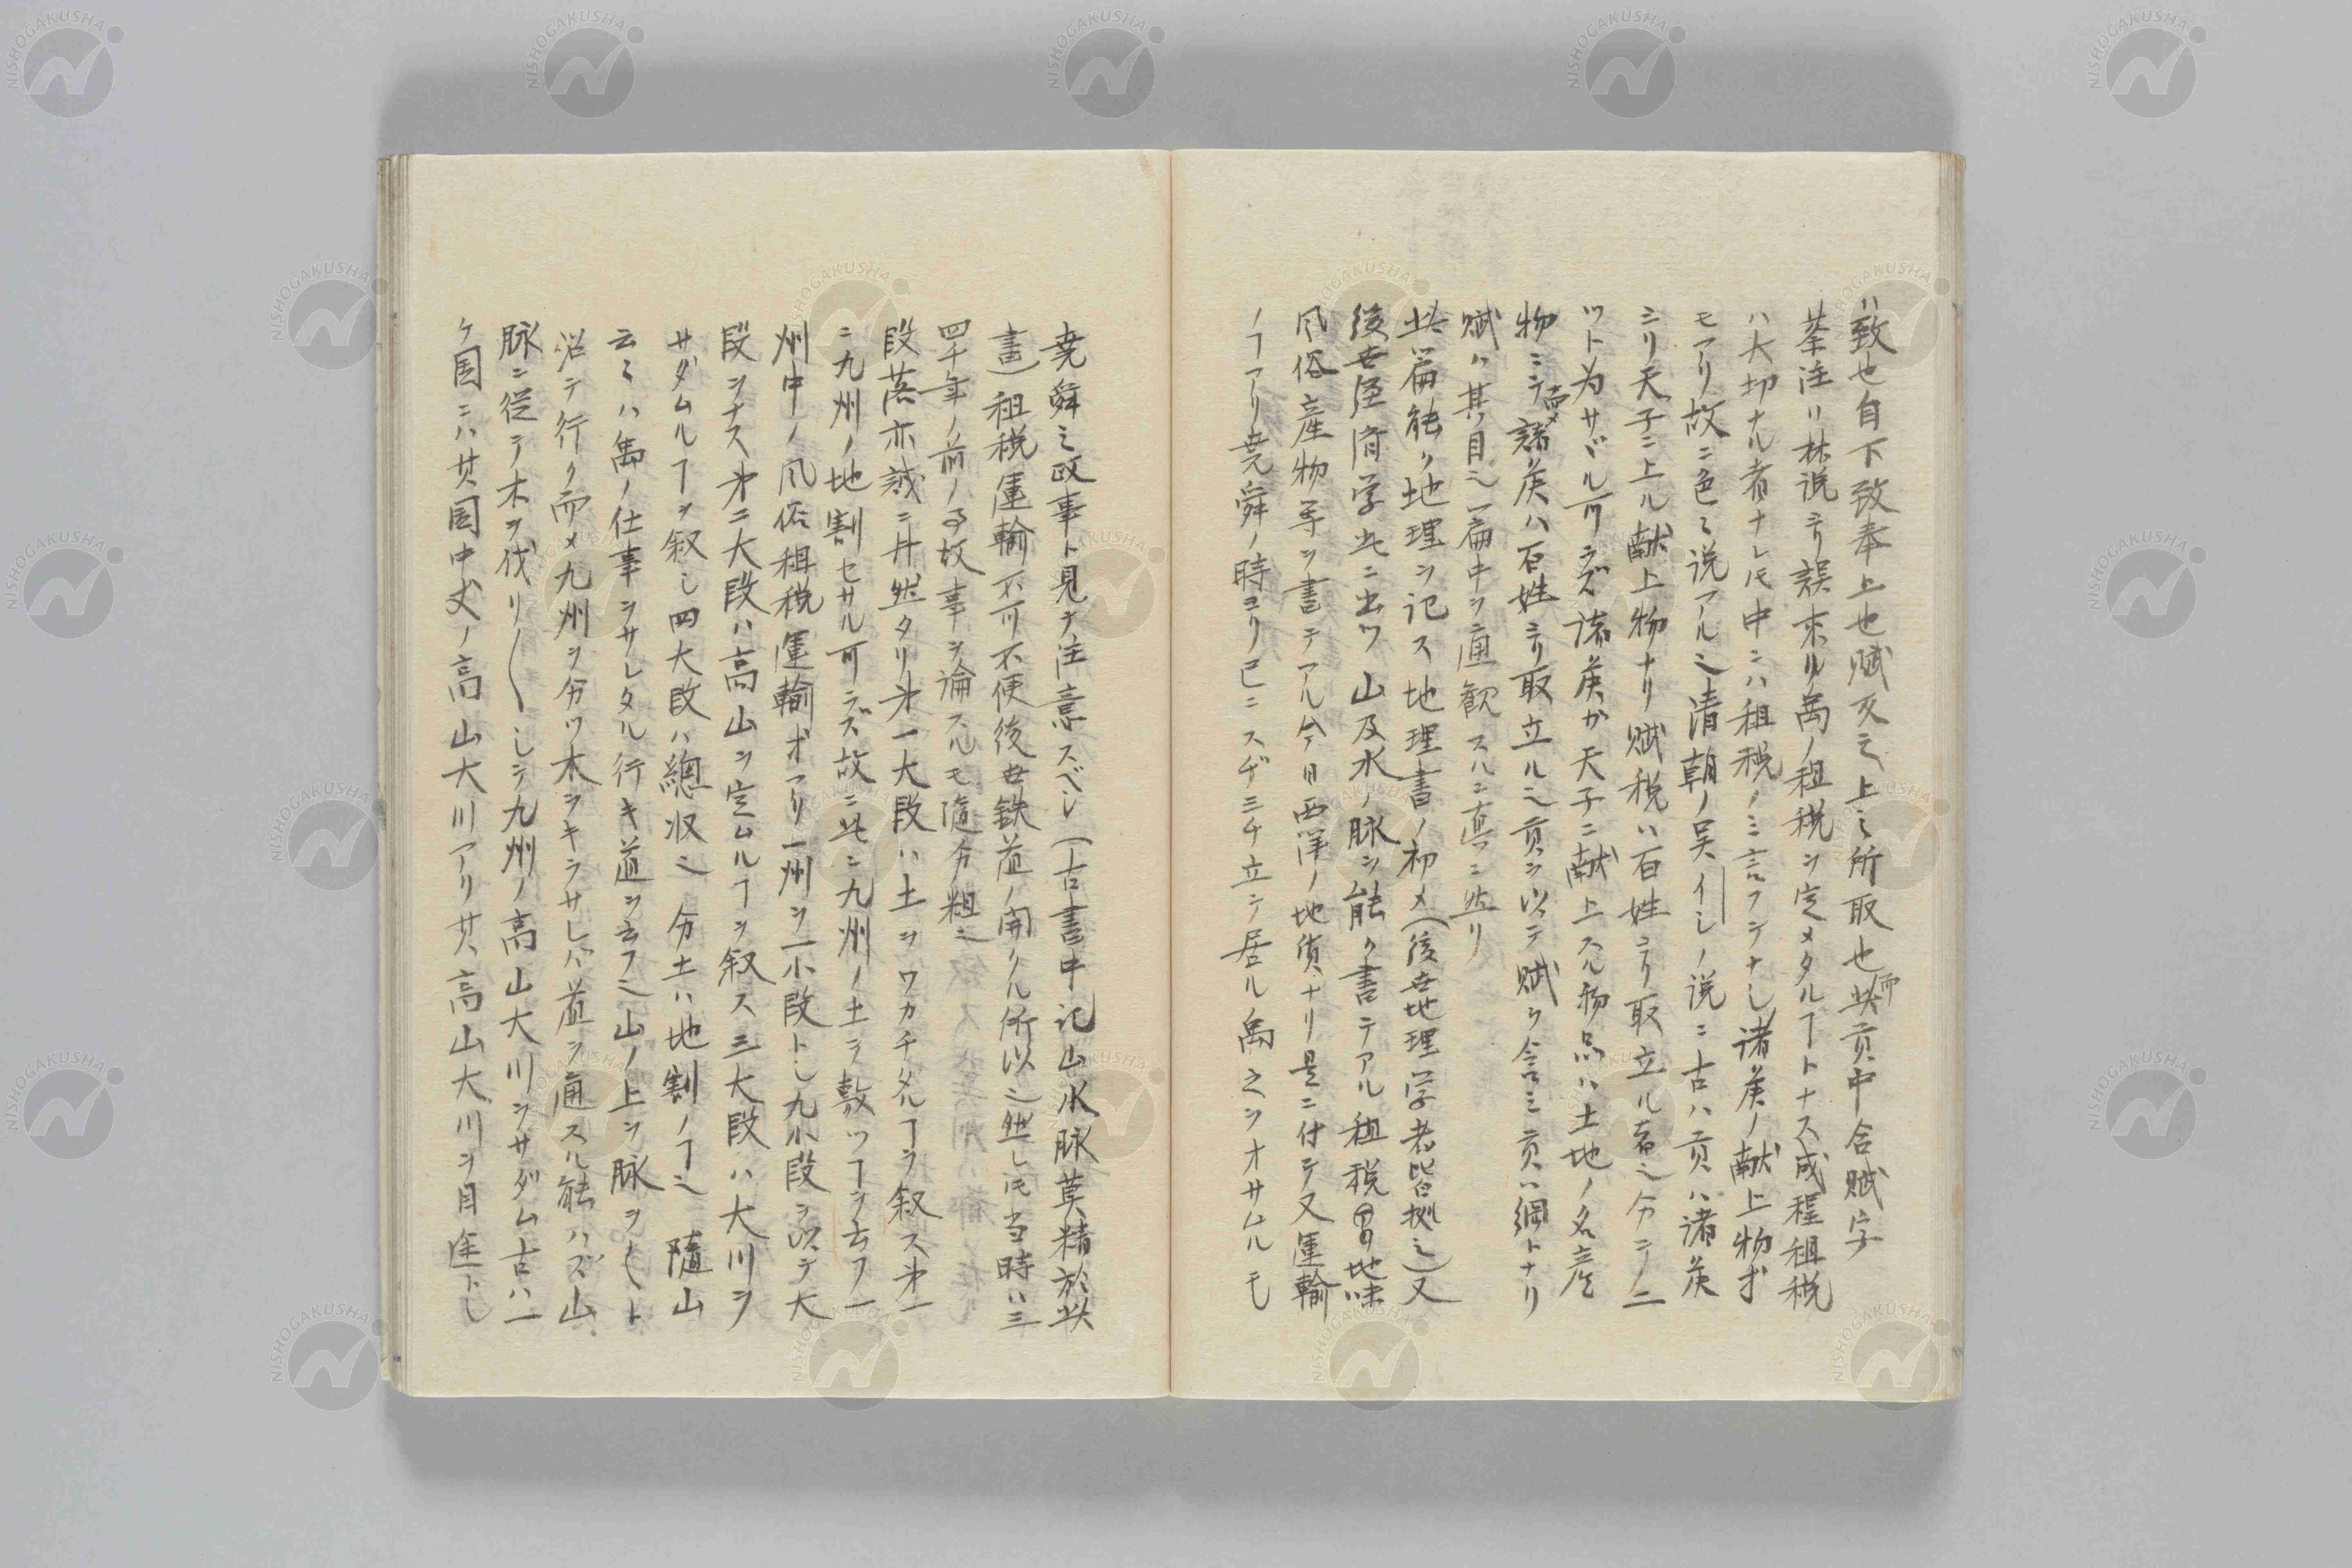 ハ致也自下致奉上也賦又云上之所取也而此貢中含賦字
蔡注ハ林説ヨリ誤来ル禹ノ租税ヲ定メタルヿトナス成程租税
ハ大切ナル者ナレ𪜈中ニハ租税ノミ言フテナシ諸侯ノ献上物ナ
モアリ故ニ色々説アル也清朝ノ吴イシノ説ニ古ハ貢ハ諸侯
ヨリ天子ニ上ル献上物ナリ賦税ハ百姓ヨリ取立ル者也分テ二
ツト為サヾル可ラズ諸侯ガ天子ニ献上スル物品ハ土地ノ名産
物ニシテ而メ諸侯ハ百姓ヨリ取立ル也貢ヲ以テ賦ヲ含ミ貢ハ綱トナリ
賦ハ其ノ目也一篇中ヲ通観スルニ真ニ然リ
此篇能ク地理ヲ記ス地理書ノ初メ（後世地理学者皆拠之）又
後世経済学此ニ出ツ山及水ノ脉ヲ能ク書テアル租税田地味
風俗産物等ヲ書テアル今日西洋ノ地質ナリ是ニ付テ又運輸
ノヿアリ堯舜ノ時ヨリ已ニスヂミチ立テ居ル禹之ヲオサムルモ
堯舜之政事ト見テ注意スベシ（古書中記山水脉莫精於此
書）租税運輸不可不便後世鉄道ノ開クル所以也然レ𪜈当時ハ三
四千年ノ前ノ𪜈故事ヲ論スルモ随分粗也
段落亦誠ニ井然タリ第一大段ハ土ヲワカチタルヿヲ叙ス第一
ニ九州ノ地割セサル可ラズ故ニ此ニ九州ノ土ヲ敷ツヿヲ云フ一
州中ノ風俗租税運輸ナアリ一州ヲ一小段トシ九小段ヲ以テ大
段ヲナス第二大段ハ高山ヲ定ムルヿヲ叙ス三大段ハ大川ヲ
サダムルヿヲ叙シ四大段ハ總収也分土ハ地割ノヿ也隨山
云々ハ禹ノ仕事ヲサレタル行キ道ヲ云フ也山ノ上ヲ脉ヲ〳〵ト
沿テ行ク而メ九州ヲ分ツ木ヲキラサレバ道ヲ通スル能ハズ山
脉ニ従テ木ヲ伐リ〳〵シテ九州ノ高山大川ヲサダム古ハ一
ケ国ニハ其国中丈ノ高山大川アリ其高山大川ヲ目途トシ